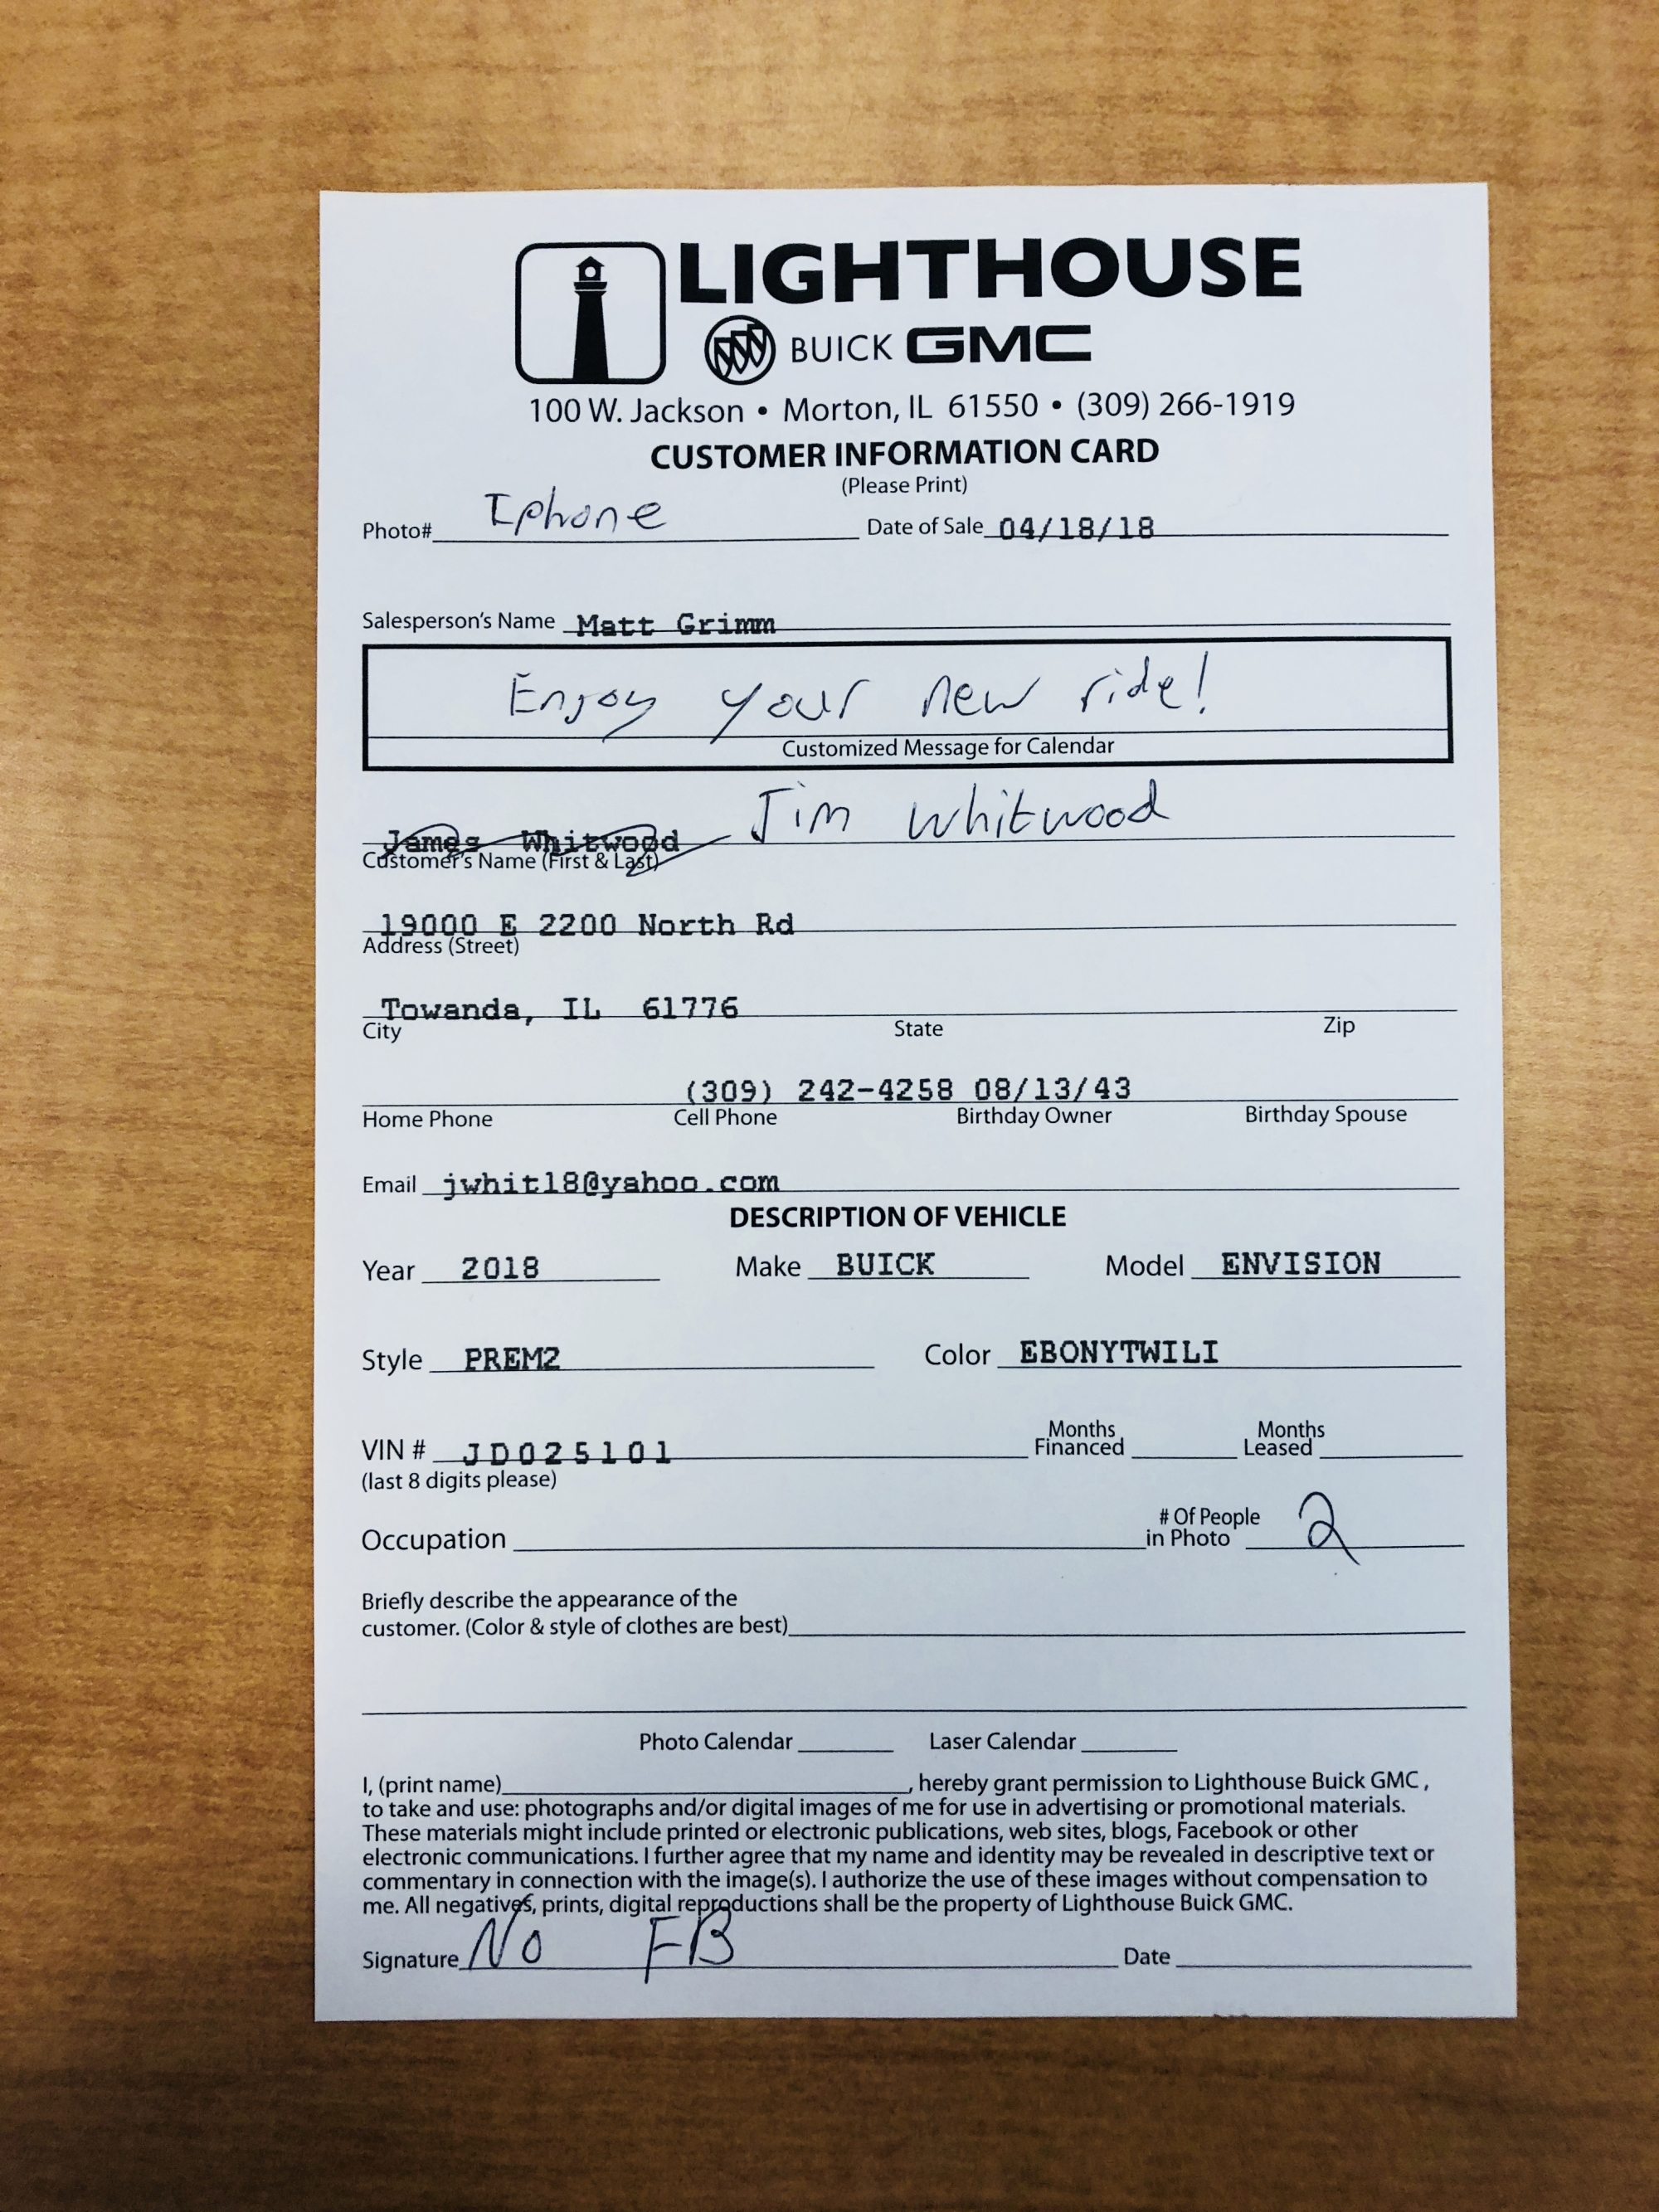 LIGHTHOUSE
BUICK GMC
100 W. Jackson • Morton, IL 61550 • (309) 266-1919
CUSTOMER INFORMATION CARD
(Please Print)
Photo# Iphone Date of Sale 04/18/18
Salesperson's Name Matt Grimm
Enjoy your new ride!
Customized Message for Calendar
James Whitwood Jim Whitwood
Customer's Name (First & Last)
19000 E 2200 North Rd
Address (Street)
Towanda, IL 61776
City State Zip
(309) 242-4258 08/13/43
Home Phone Cell Phone Birthday Owner Birthday Spouse
Email jwhit18@yahoo.com
DESCRIPTION OF VEHICLE
Year 2018 Make BUICK Model ENVISION
Style PREM2 Color EBONYTWILI
VIN # JD025101 Months Financed Months Leased
(last 8 digits please)
Occupation # Of People in Photo 2
Briefly describe the appearance of the
customer. (Color & style of clothes are best)
Photo Calendar Laser Calendar
I, (print name) , hereby grant permission to Lighthouse Buick GMC ,
to take and use: photographs and/or digital images of me for use in advertising or promotional materials.
These materials might include printed or electronic publications, web sites, blogs, Facebook or other
electronic communications. I further agree that my name and identity may be revealed in descriptive text or
commentary in connection with the image(s). I authorize the use of these images without compensation to
me. All negatives, prints, digital reproductions shall be the property of Lighthouse Buick GMC.
Signature No FB Date